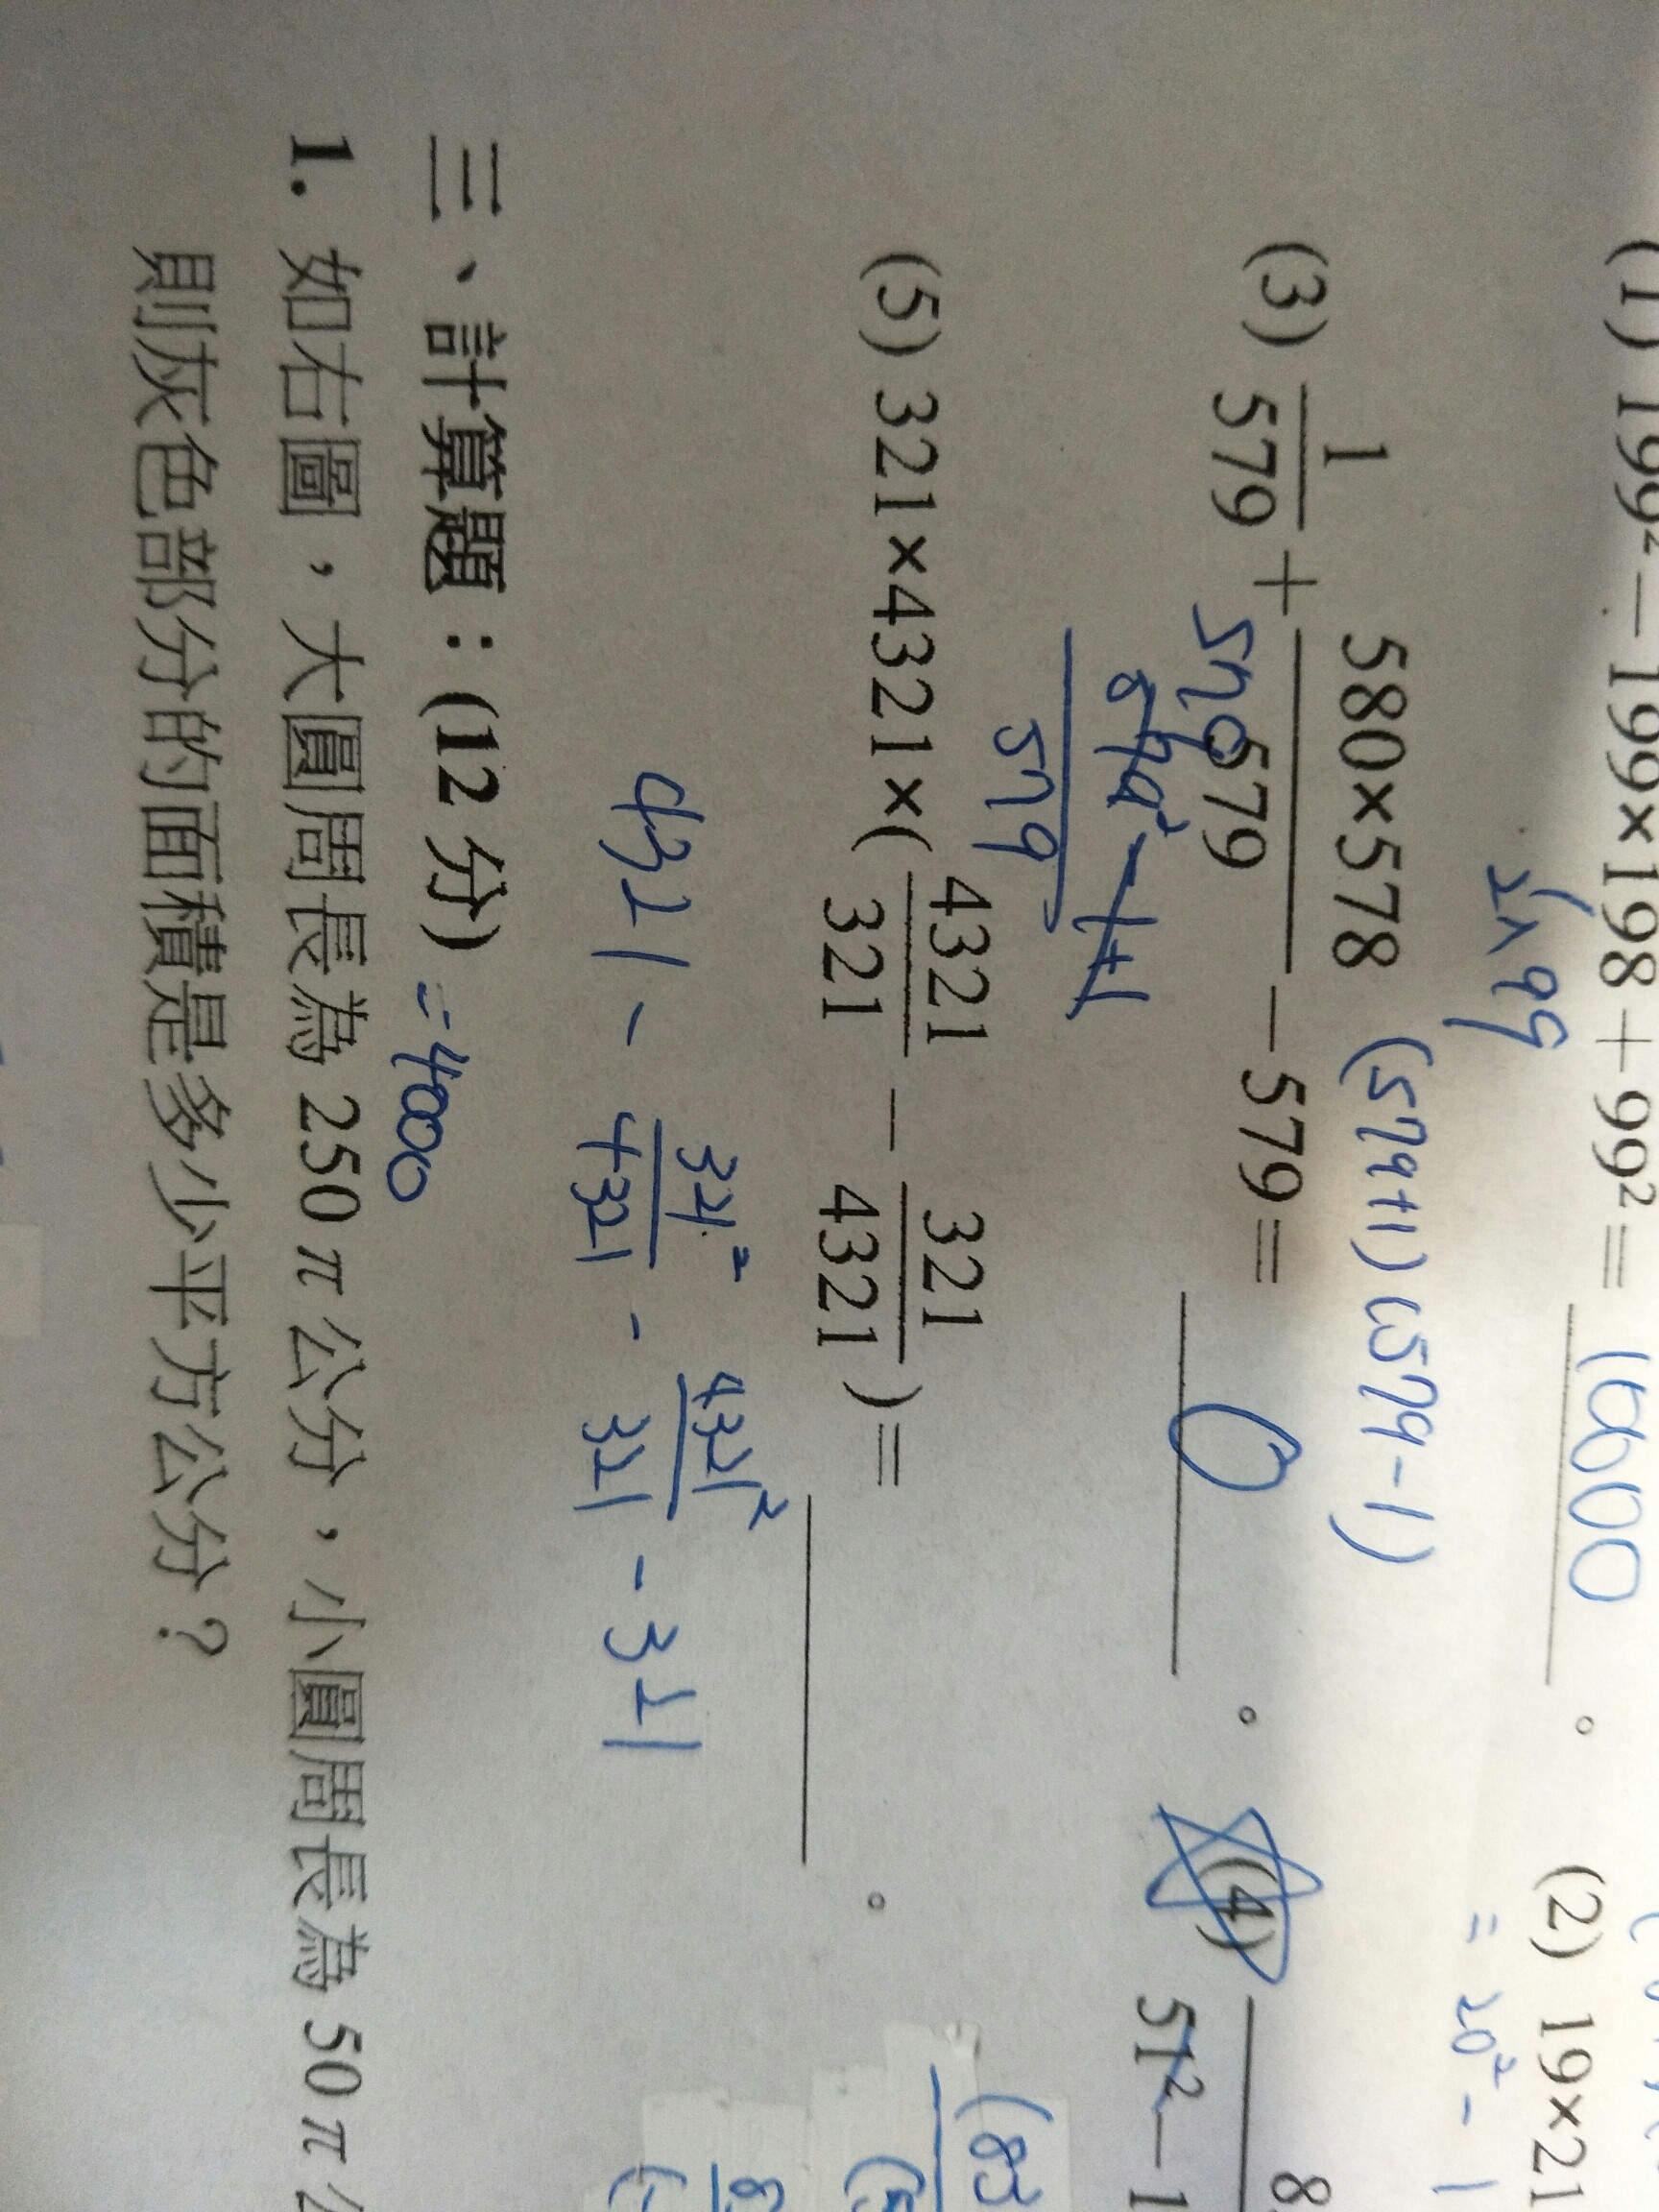 (1) 199² − 199×198 + 99² = 10000 。 (2) 19×21
= 20² - 1
(579+1)(579-1)
(3) 1/579 + 580×578/579 − 579 = 0 。 (4) 51² − 1
579
579² - 1 + 1
579
(5) 321×4321×( 4321/321 − 321/4321 ) = 。
4321 - 321²/4321 - 4321²/321 - 321
三、計算題：(12 分) = 4000
1. 如右圖，大圓周長為 250 π 公分，小圓周長為 50 π 公
則灰色部分的面積是多少平方公分？